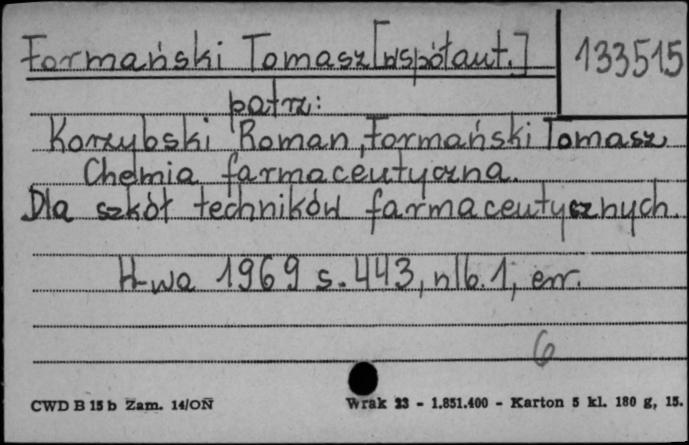 Formański Tomasz [współaut.] 133515
patrz:
Korzybski Roman, Formański Tomasz
Chemia farmaceutyczna.
Dla szkół techników farmaceutycznych.
W-wa 1969 s. 443, nlb. 1, err.
6
CWD B 15 b Zam. 14/ON Wrak 23 - 1.851.400 - Karton 5 kl. 180 g, 15.